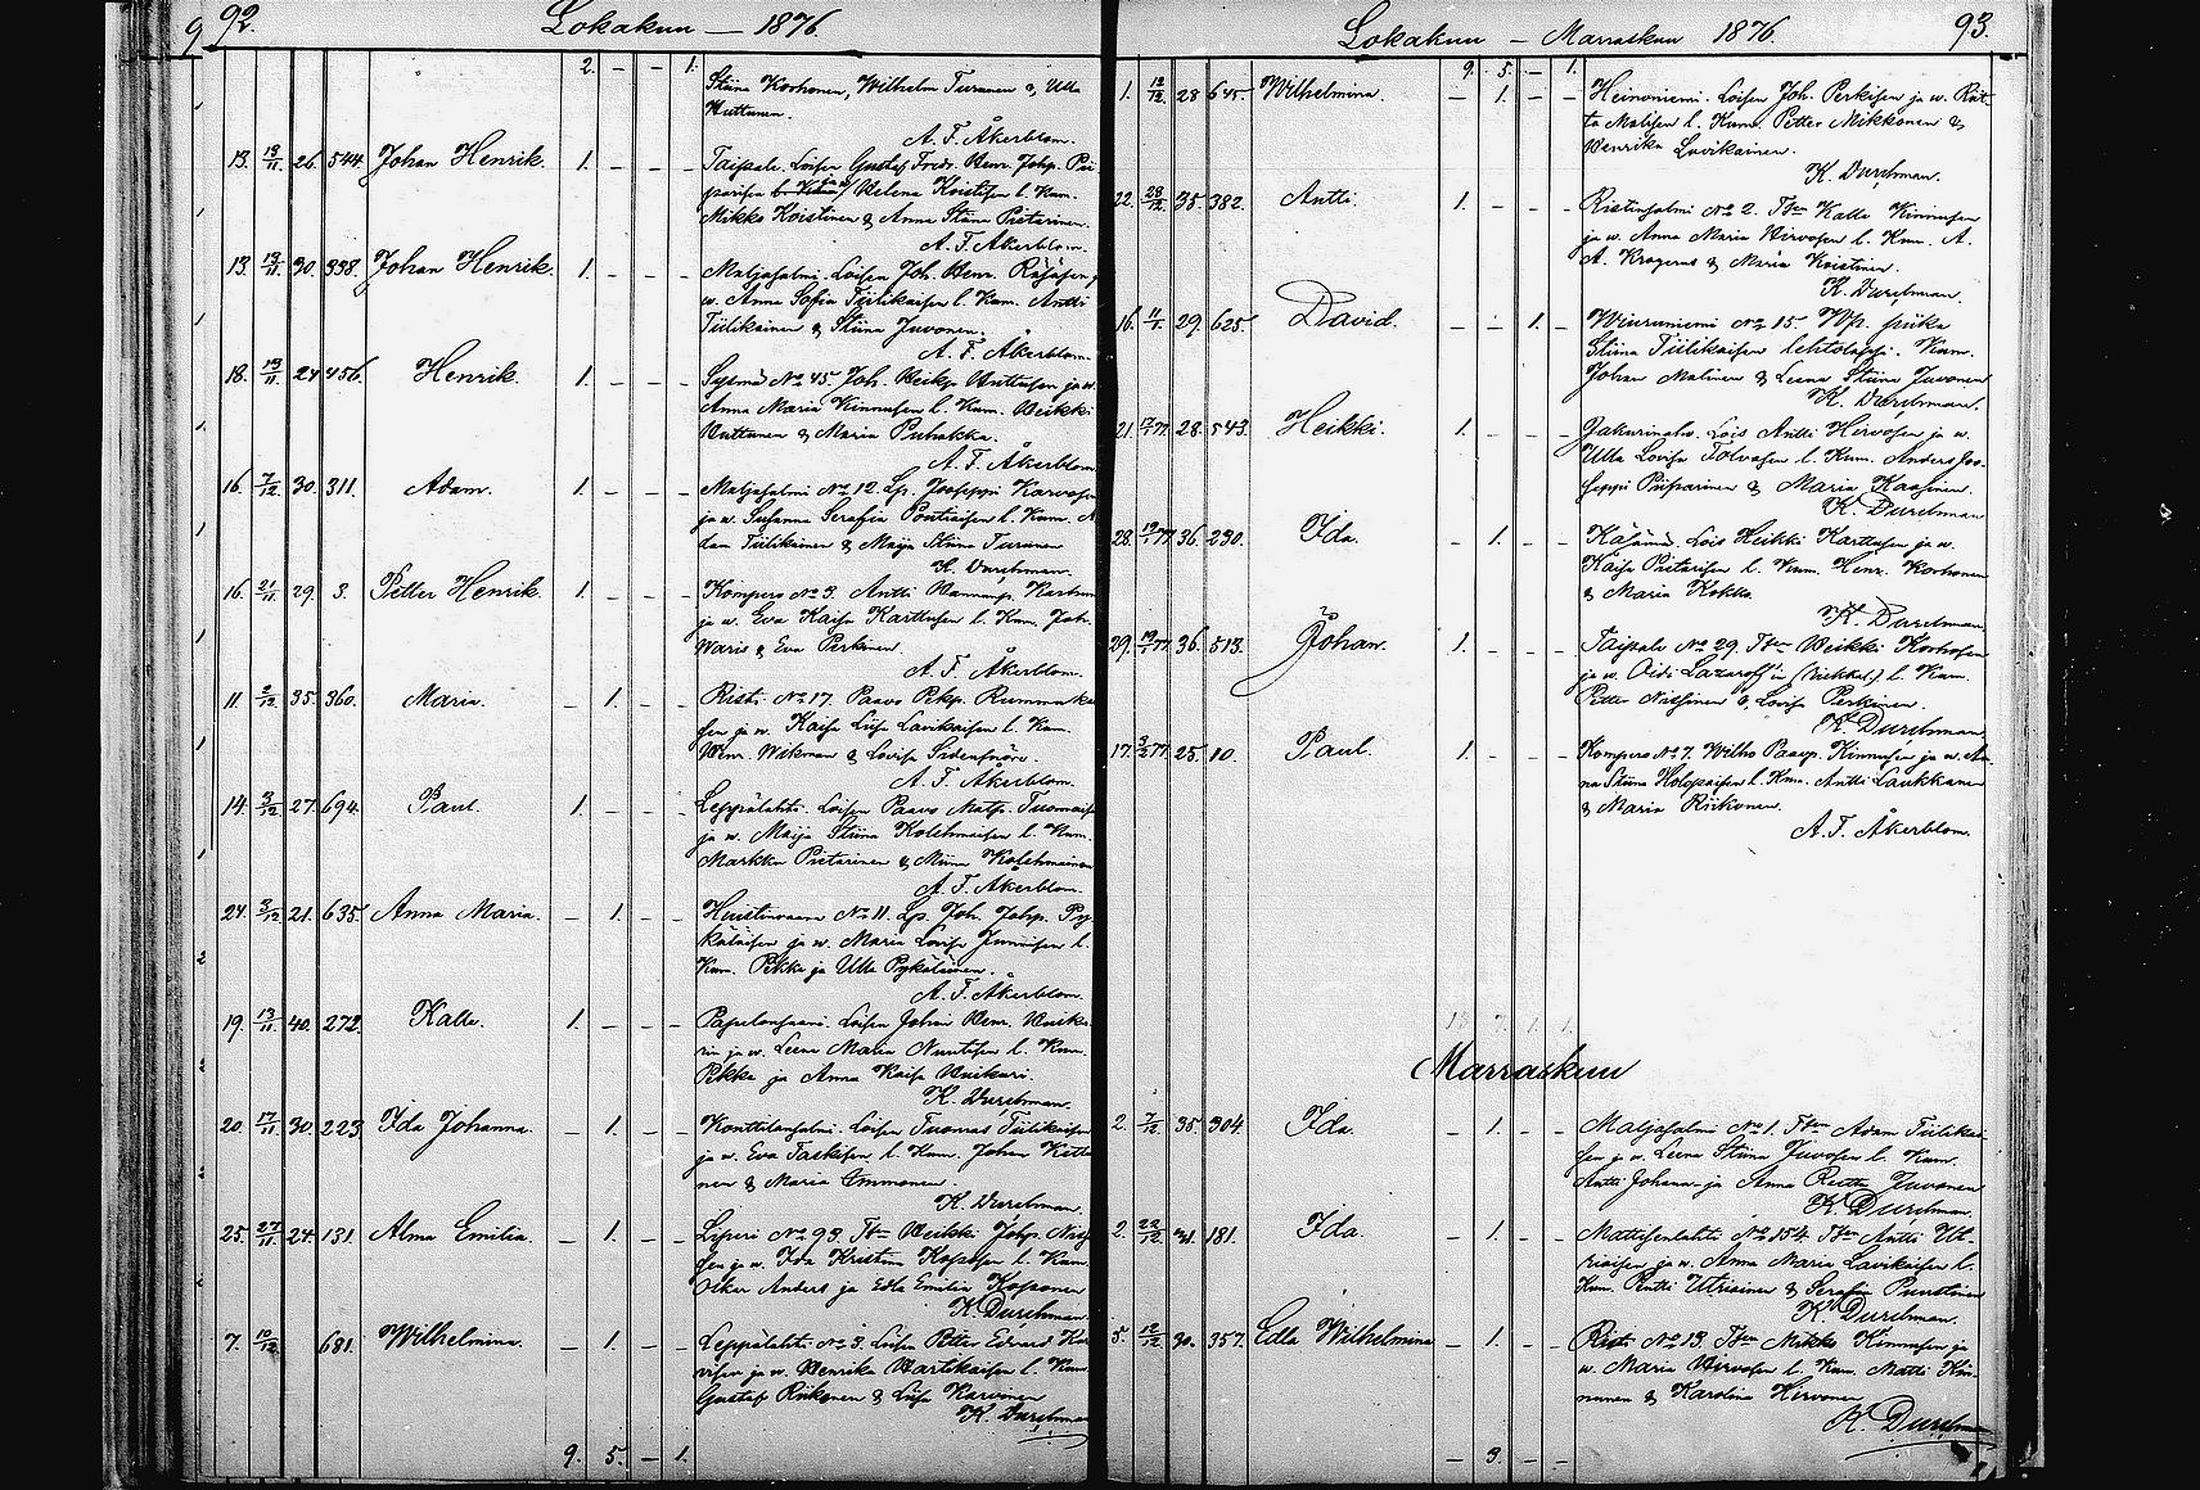 92.
Lokakuu — 1876.
2. — — 1.
Stiina Korhonen, Wilhelm Turunen &, Ulla
Huttunen.
A. F. Åkerblom.
13. 19/11 26. 544. Johan Henrik. 1. — — — Taipale. Loisen Gustaf Fredr. Henr. Johp. Pii
parisen ja w. Helena Koistisen l. Kum.
Mikko Koistinen & Anna Stiina Pietarinen.
A. F. Åkerblom.
13. 19/11 30. 338. Johan Henrik. 1. — — — Maljasalmi. Loisen Joh. Henr. Räsäsen j
w. Anna Sofia Tiilikaisen l. Kum. Antti
Tiilikainen & Stiina Juvonen.
A. F. Åkerblom.
18. 19/11 24 456. Henrik. 1. — — — Sysmä No 45. Joh. Heikp. Huttusen ja w.
Anna Maria Kinnusen l. Kum. Heikki
Huttunen & Maria Puhakka.
A. F. Åkerblom.
16. 7/12 30. 311. Adam. 1. — — — Maljasalmi No 12. Lp. Jooseppi Karvosen
ja w. Susanna Serafia Pontiaisen l. Kum. A
dam Tiilikainen & Maija Stiina Turunen
K. Durchman.
16. 21/11 29. 3. Petter Henrik. 1. — — — Kompero No 3. Antti Hannunp. Karttun
ja w. Eva Kaisa Karttusen l. Kum. Joh.
Waris & Eva Perkinen.
A. F. Åkerblom.
11. 2/12 35. 360. Maria. — 1. — — Risti. No 17. Paavo Pekp. Rummuka
sen ja w. Kaisa Liisa Lavikaisen l. Kum.
Henr. Wakman & Lovisa Sidensnöre.
A. F. Åkerblom.
14. 3/12 27. 694. Paul. 1. — — — Leppälahti. Loisen Paavo Matp. Tuomaise
ja w. Maija Stiina Kolehmaisen l. Kum.
Markku Pietarinen & Miina Kolehmainen
A. F. Åkerblom.
24. 3/12 21. 635. Anna Maria. — 1. — — Huistinvaara No 11. Lp. Joh. Johp. Py-
käläisen ja w. Maria Lovisa Junnisen l.
Kum. Pekka ja Ulla Pykäläinen.
A. F. Åkerblom.
19. 13/11 40. 272. Kalle. 1. — — — Papelonsaari. Loisen Johan Henr. Huiku-
rin ja w. Leena Maria Nuutisen l. Kum.
Pekka ja Anna Kaisa Huikuri.
K. Durchman.
20. 17/11 30. 223 Ida Johanna. — 1. — — Konttilansalmi. Loisen Tuomas Tiilikaisen
ja w. Eva Taskisen l. Kum. Johan Kettu
nen & Maria Immonen.
K. Durchman.
25. 27/11 24. 131. Alma Emilia. — 1. — — Liperi No 93. Heikki Johp.
sen ja w. Ida Kristina Kopposen l. Kum.
Oskar Anders ja Edla Emilia Kopponen
K. Durchman.
7. 10/12 681. Wilhelmina. — 1. — — Leppälahti No 3. Loisen Petter Edvard Kar
visen ja w. Henrika Hartikaisen l. Kum.
Gustaf Riikonen & Liisa Karvinen
K. Durchman
9. 5. — 1.
Lokakuu — Marraskuu 1876. 93.
9. 5. — 1.
1. 12/12 28 645. Wilhelmina. — 1. — — Heinoniemi. Loisen Joh. Perkisen ja w. Riit-
ta Malisen l. Kum. Petter Mikkonen &
Henrika Lavikainen.
K. Durchman.
22. 28/12 35. 382. Antti. 1. — — — Ristinsalmi No 2. Kalle Kinnusen
ja w. Anna Maria Hirvosen l. Kum. A.
A. Krogerus & Maria Koistinen.
K. Durchman.
16. 11/1 29. 625. David. — — 1. — Wiuruniemi No 15. Wp. piika
Stiina Tiilikaisen lehtolapsi. Kum.
Johan Malinen & Leena Stiina Juvonen
K. Durchman.
21. 17/1 77. 28. 543. Heikki. 1. — — — Lois Antti Hirvosen ja w.
Ulla Lovisa Tolvasen l. Kum. Anders Joo-
seppi Piiparinen & Maria Kaasinen.
K. Durchman
28. 19/1 77. 36. 230. Ida. — 1. — — Käsämä. Lois Heikki Karttusen ja w.
Kaisa Pietarisen l. Kum. Henr. Korhonen
& Maria Kokko.
K. Durchman
29. 19/1 77. 36. 513. Johan. 1. — — — Taipale No 29. Heikki Korhosen
ja w. Oidi Lazaroff'in l. Kum.
Petter Nissinen &, Lovisa Perkinen.
K. Durchman
17. 3/2 77. 25. 10. Paul. 1. — — — Kompero No 7. Wilho Paavp. Kinnusen ja w. An-
na Stiina Holopaisen l. Kum. Antti Laukkanen
& Maria Riikonen.
A. F. Åkerblom.
13. 7. 1. 1.
Marraskuu
2. 7/12 35. 304. Ida. — 1. — — Maljasalmi No 1. Adam Tiilikai-
sen ja w. Leena Stiina Juvosen l. Kum.
Antti Johan- ja Anna Reetta Juvonen
K. Durchman.
2. 22/12 31. 181. Ida. — 1. — — Mattisenlahti No 154. Antti Ut-
riaisen ja w. Anna Maria Lavikaisen l.
Kum. Pentti Utriainen & Serafia Puustinen
K. Durchman.
5. 12/12 30. 357. Edla Wilhelmina — 1. — — Risti No 13. Mikko Kinnusen ja
w. Maria Hirvosen l. Kum. Matti Kin-
nunen & Karolina Hirvonen
K. Durchman
— 3. — —